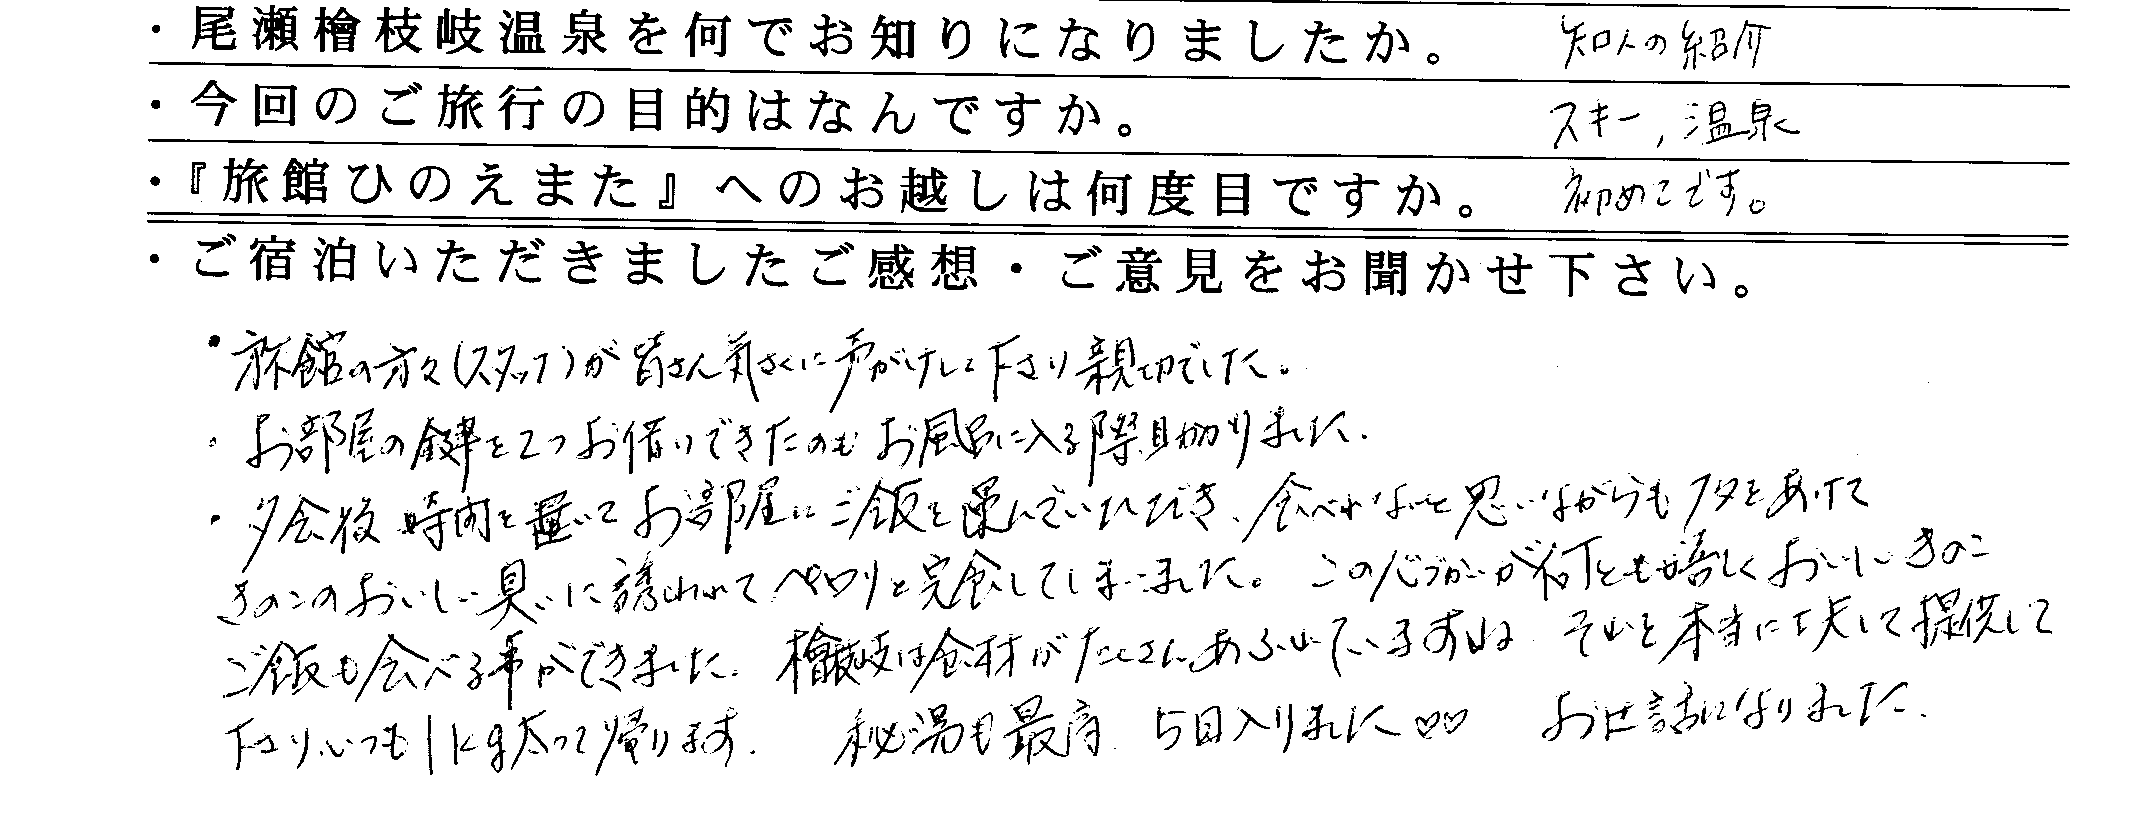 ・尾瀬檜枝岐温泉を何でお知りになりましたか。 知人の紹介
・今回のご旅行の目的はなんですか。 スキー,温泉
・『旅館ひのえまた』へのお越しは何度目ですか。 初めてです。
・ご宿泊いただきましたご感想・ご意見をお聞かせ下さい。
・旅館の方々(スタッフ)が皆さん気さくに声がけして下さり親切でした。
・お部屋の鍵を2つお借りできたのもお風呂に入る際助かりました.
・夕食後 時間を置いてお部屋にご飯を運んでいただき、食べれないと思いながらもフタをあけて
きのこのおいしい臭いに誘われてペロリと完食してしまいました。この心づかいが何とも嬉しくおいしいきのこ
ご飯も食べる事ができました. 檜枝岐は食材がたくさんあふれていますね. それを本当に工夫して提供して
下さりいつも1kg太って帰ります. 秘湯も最高. 5回入りました♡♡ お世話になりました.